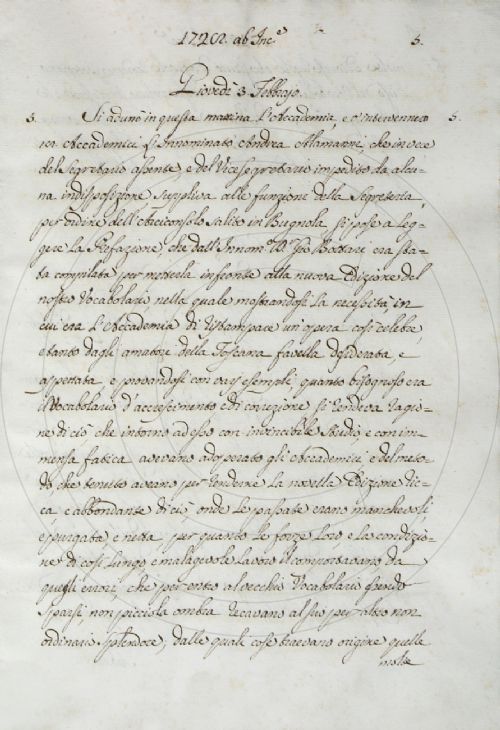 172 ab Inc.e 5.
Giovedì 3 Febbrajo.
3. Si adunò in questa mattina l'Accademia, e v'intervennero 5.
Accademici L'Innominato Andrea Alamanni, che in vece
del Segretario assente, e del Vicesegretario impedito da alcu-
na indisposizione suppliva alle funzioni della Segreteria,
per ordine dell'Arciconsolo salito in Bugnola si pose a leg-
gere la Prefazione, che dall'Innom. Gio Bottari era sta-
ta compilata per metterla in fronte alla nuova Edizione del
nostro Vocabolario nella quale mostrandosi la necessità, in
cui era l'Accademia di ristampare un'opera così celebre,
e tanto dagli amatori della Toscana favella desiderata, e
aspettata e provandosi con varj esempli, quanto bisognoso era
il Vocabolario d'accrescimento e di correzione si rendeva ragio-
ne di ciò che intorno ad esso con invincibile studio e con im-
mensa fatica avevano adoperato gli Accademici e del meto-
do, che tenuto aveano per rendere la novella Edizione ric-
ca e abbondante di ciò, onde le passate erano manchevoli
e spurgata e netta per quanto le forze loro e la condizio-
ne di così lungo, e malagevole lavoro il comportavano da
quegli errori, che per entro al vecchio Vocabolario
sparsi, non picciola ombra recavano al suo per altro non
ordinario splendore, dalle quali cose traevano origine quelle
molte